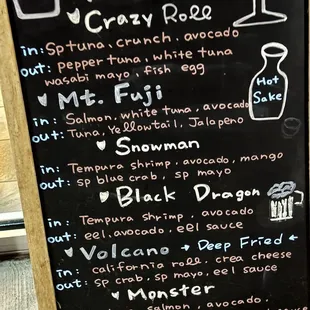 Crazy Roll
in: Sp tuna, crunch, avocado
out: pepper tuna, white tuna
wasabi mayo, fish egg
Mt. Fuji
in: Salmon, white tuna, avocado
out: Tuna, Yellowtail, Jalapeno
Hot
Sake
Snowman
in: Tempura shrimp, avocado, mango
out: sp blue crab, sp mayo
Black Dragon
in: Tempura shrimp, avocado
out: eel, avocado, eel sauce
Volcano → Deep Fried ←
in: california roll, crea cheese
out: sp crab, sp mayo, eel sauce
Monster
salmon, avocado,